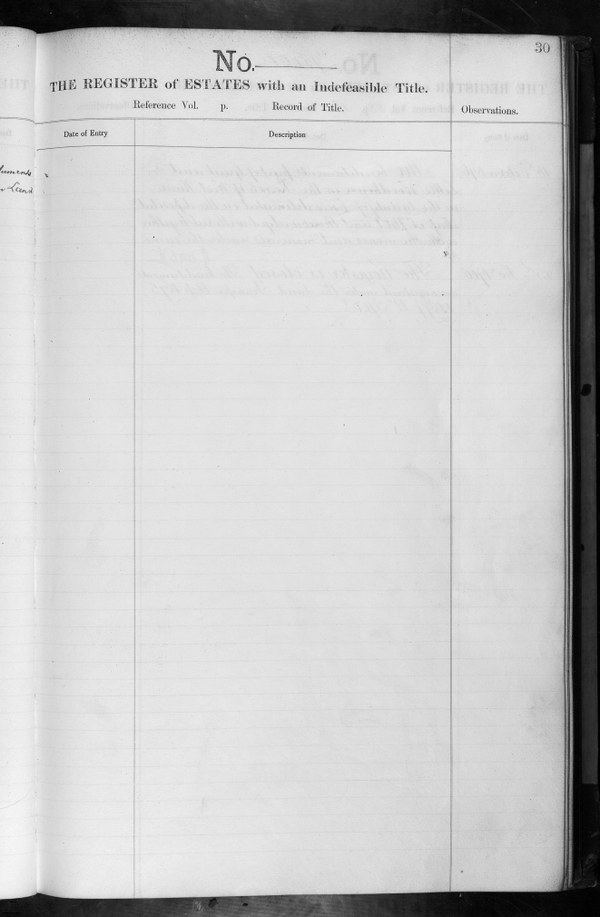 30
No.
THE REGISTER of ESTATES with an Indefeasible Title.
Reference Vol. p. Record of Title.
Observations.
Date of Entry
Description
Land